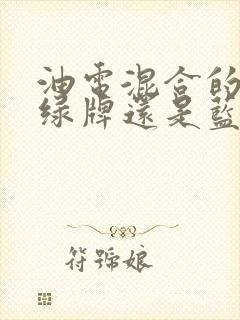 油電混合的
綠牌還是藍
符號娘